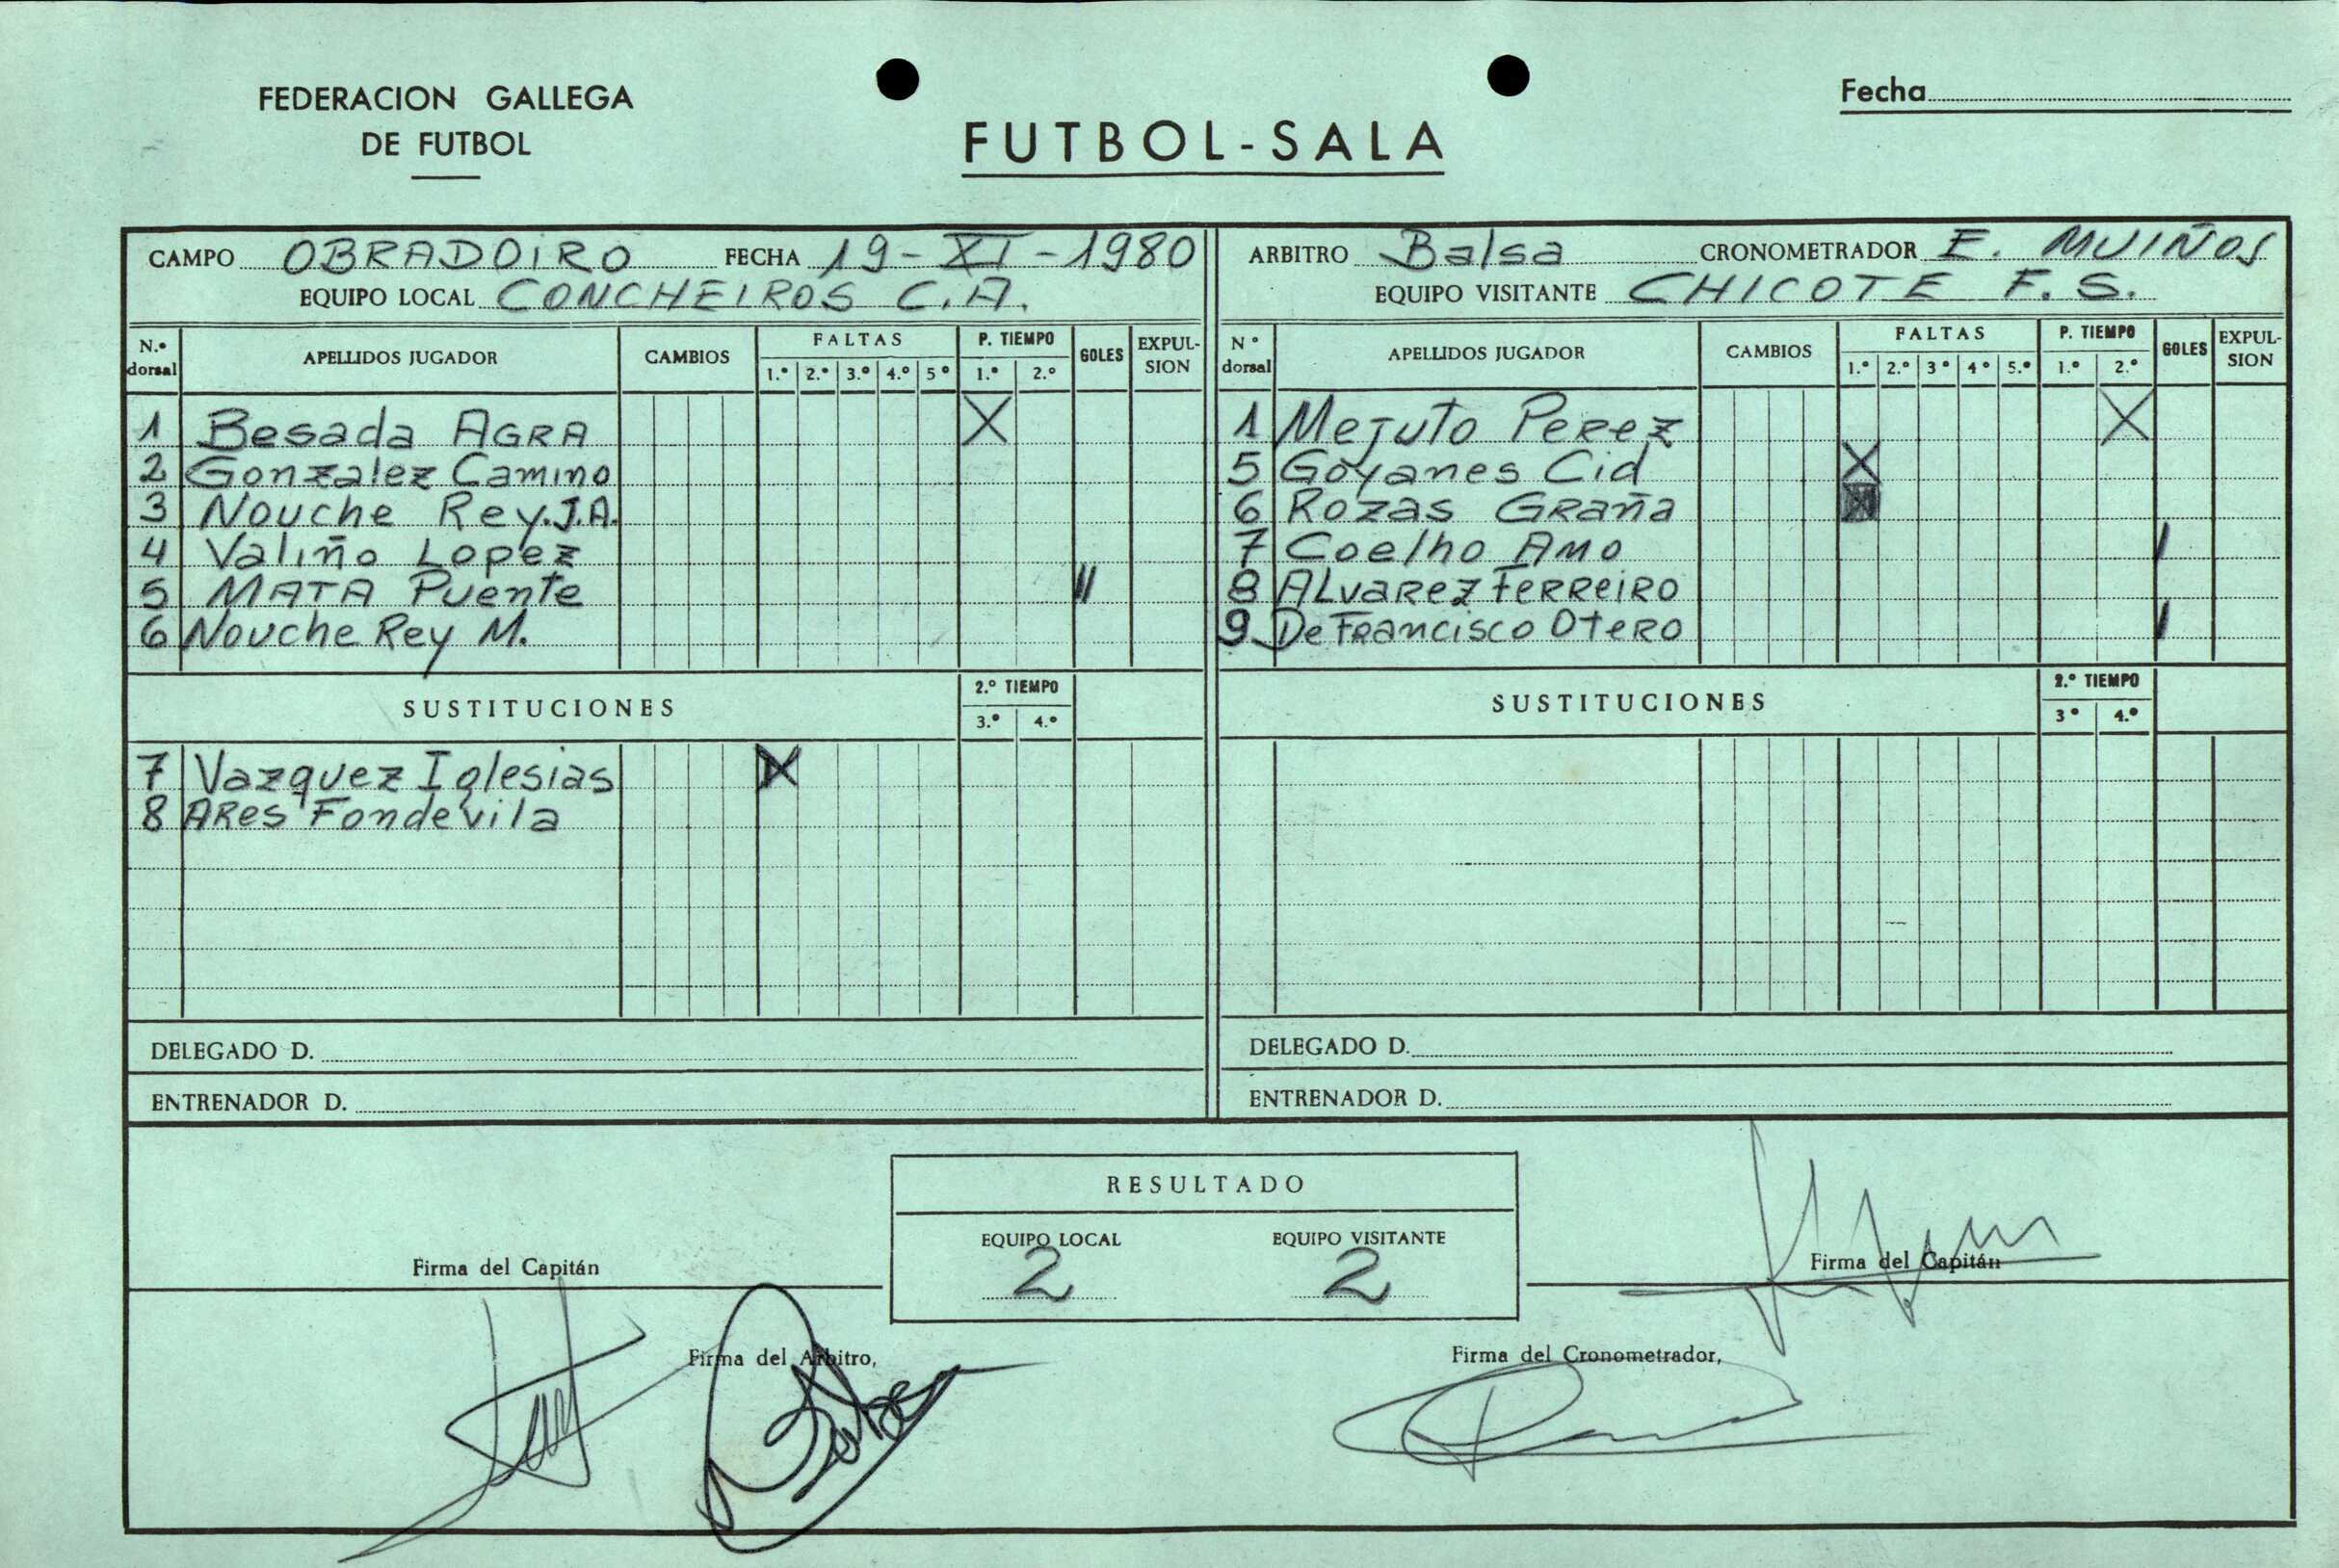 FEDERACION GALLEGA
DE FUTBOL
FUTBOL-SALA
Fecha
CAMPO OBRADOIRO FECHA 19-XI-1980
EQUIPO LOCAL CONCHEIROS C.A.
N.º dorsal APELLIDOS JUGADOR CAMBIOS FALTAS 1.º 2.º 3.º 4.º 5º P. TIEMPO 1.º 2.º GOLES EXPULSION
1 Besada AGRA X
2 Gonzalez Camino
3 Nouche Rey.J.A.
4 Valiño Lopez
5 MATA Puente II
6 Nouche Rey M.
SUSTITUCIONES 2.º TIEMPO 3.º 4.º
7 Vazquez Iglesias X
8 ARes Fondevila
DELEGADO D.
ENTRENADOR D.
ARBITRO Balsa CRONOMETRADOR E. MUIÑOS
EQUIPO VISITANTE CHICOTE F.S.
Nº dorsal APELLIDOS JUGADOR CAMBIOS FALTAS 1.º 2.º 3º 4º 5.º P. TIEMPO 1.º 2.º GOLES EXPULSION
1 Mejuto Perez X
5 Goyanes Cid X
6 Rozas Graña X
7 Coelho Amo I
8 Alvarez Ferreiro
9 De Francisco Otero I
SUSTITUCIONES 2.º TIEMPO 3º 4.º
DELEGADO D.
ENTRENADOR D.
RESULTADO
EQUIPO LOCAL EQUIPO VISITANTE
2 2
Firma del Capitán
Firma del Capitán
Firma del Arbitro,
Firma del Cronometrador,